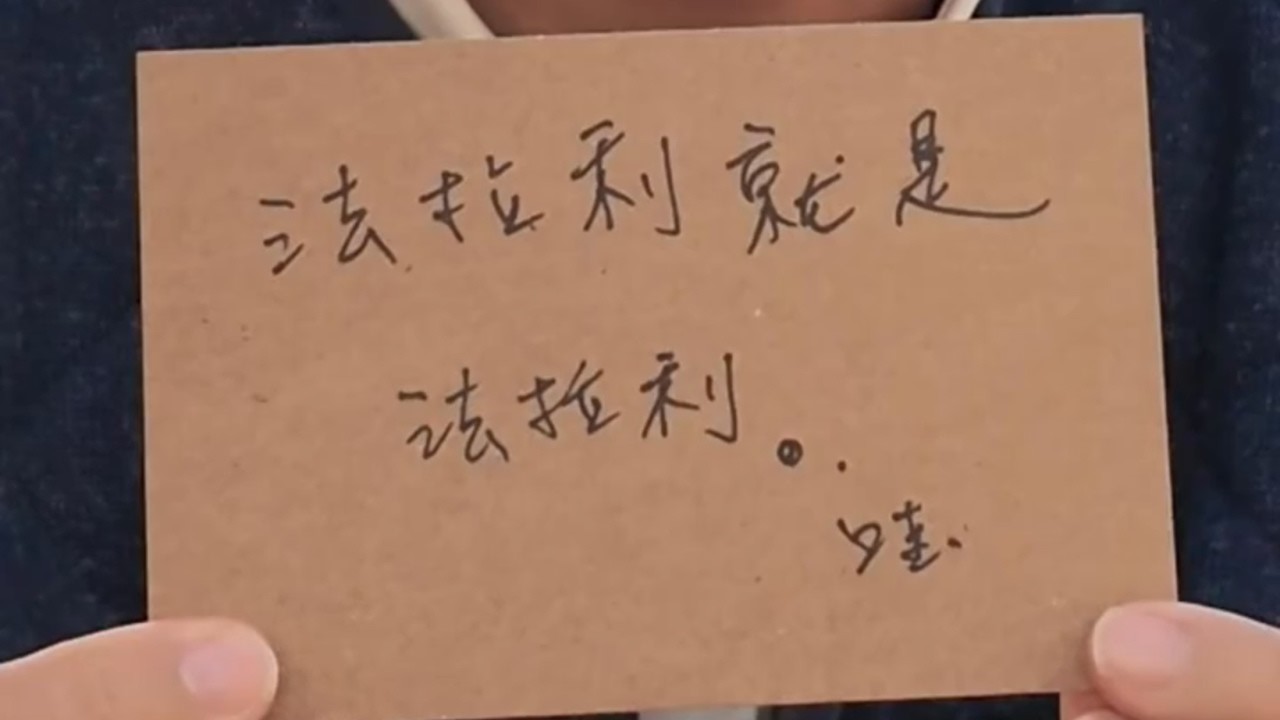 法拉利就是
法拉利。.
哇.